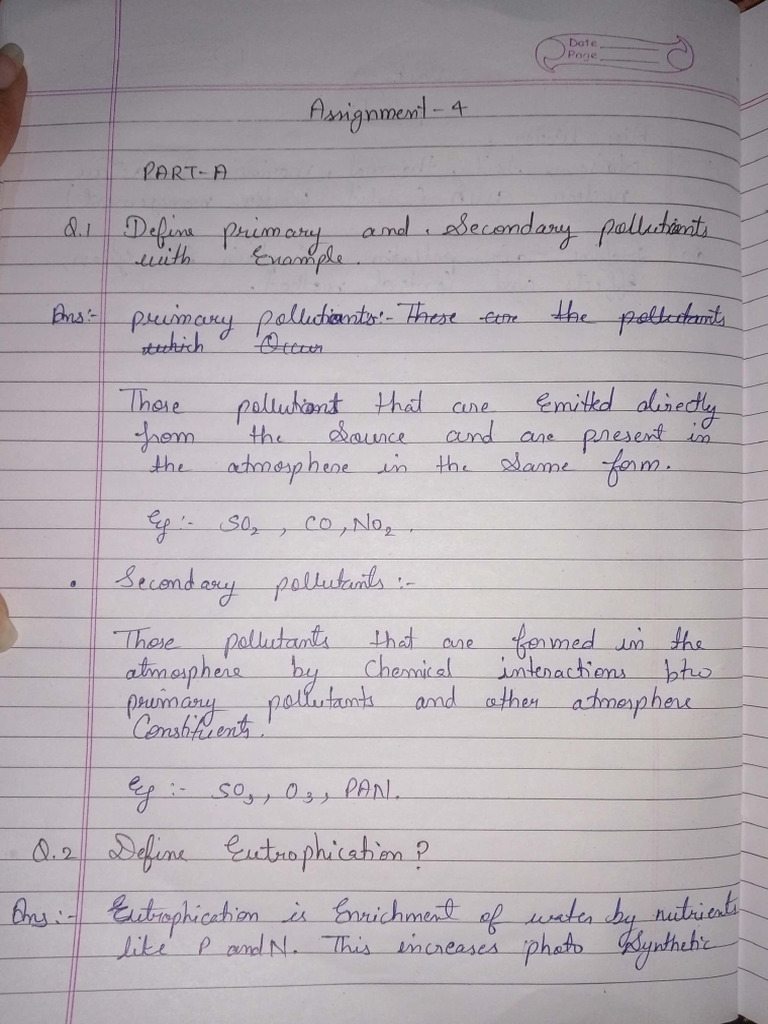 Date
Page
Assignment - 4
PART-A
Q.1 Define primary and . Secondary pollutants
with Example.
Ans:- primary pollutants:- These are the pollutants
which Occur
Those pollutant that are Emitted directly
from the Source and are present in
the atmosphere in the Same form.
Eg :- SO₂ , CO , NO₂ .
• Secondary pollutants :-
Those pollutants that are formed in the
atmosphere by Chemical interactions btw
primary pollutants and other atmosphere
Constituents.
Eg :- SO₃ , O₃ , PAN.
Q.2 Define Eutrophication ?
Ans :- Eutrophication is Enrichment of water by nutrients
like P and N. This increases photo Synthetic